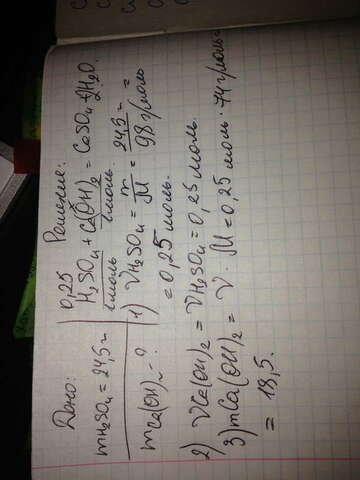 Дано:
mH₂SO₄ = 24,5 г
mCa(OH)₂ - ?
Решение:
0,25
H₂SO₄ + Ca(OH)₂ = CaSO₄ + 2H₂O.
1моль 1моль
1) νH₂SO₄ = m/M = 24,5 г / 98 г/моль =
= 0,25 моль.
2) νCa(OH)₂ = νH₂SO₄ = 0,25 моль.
3) mCa(OH)₂ = ν · M = 0,25 моль · 74 г/моль =
= 18,5.